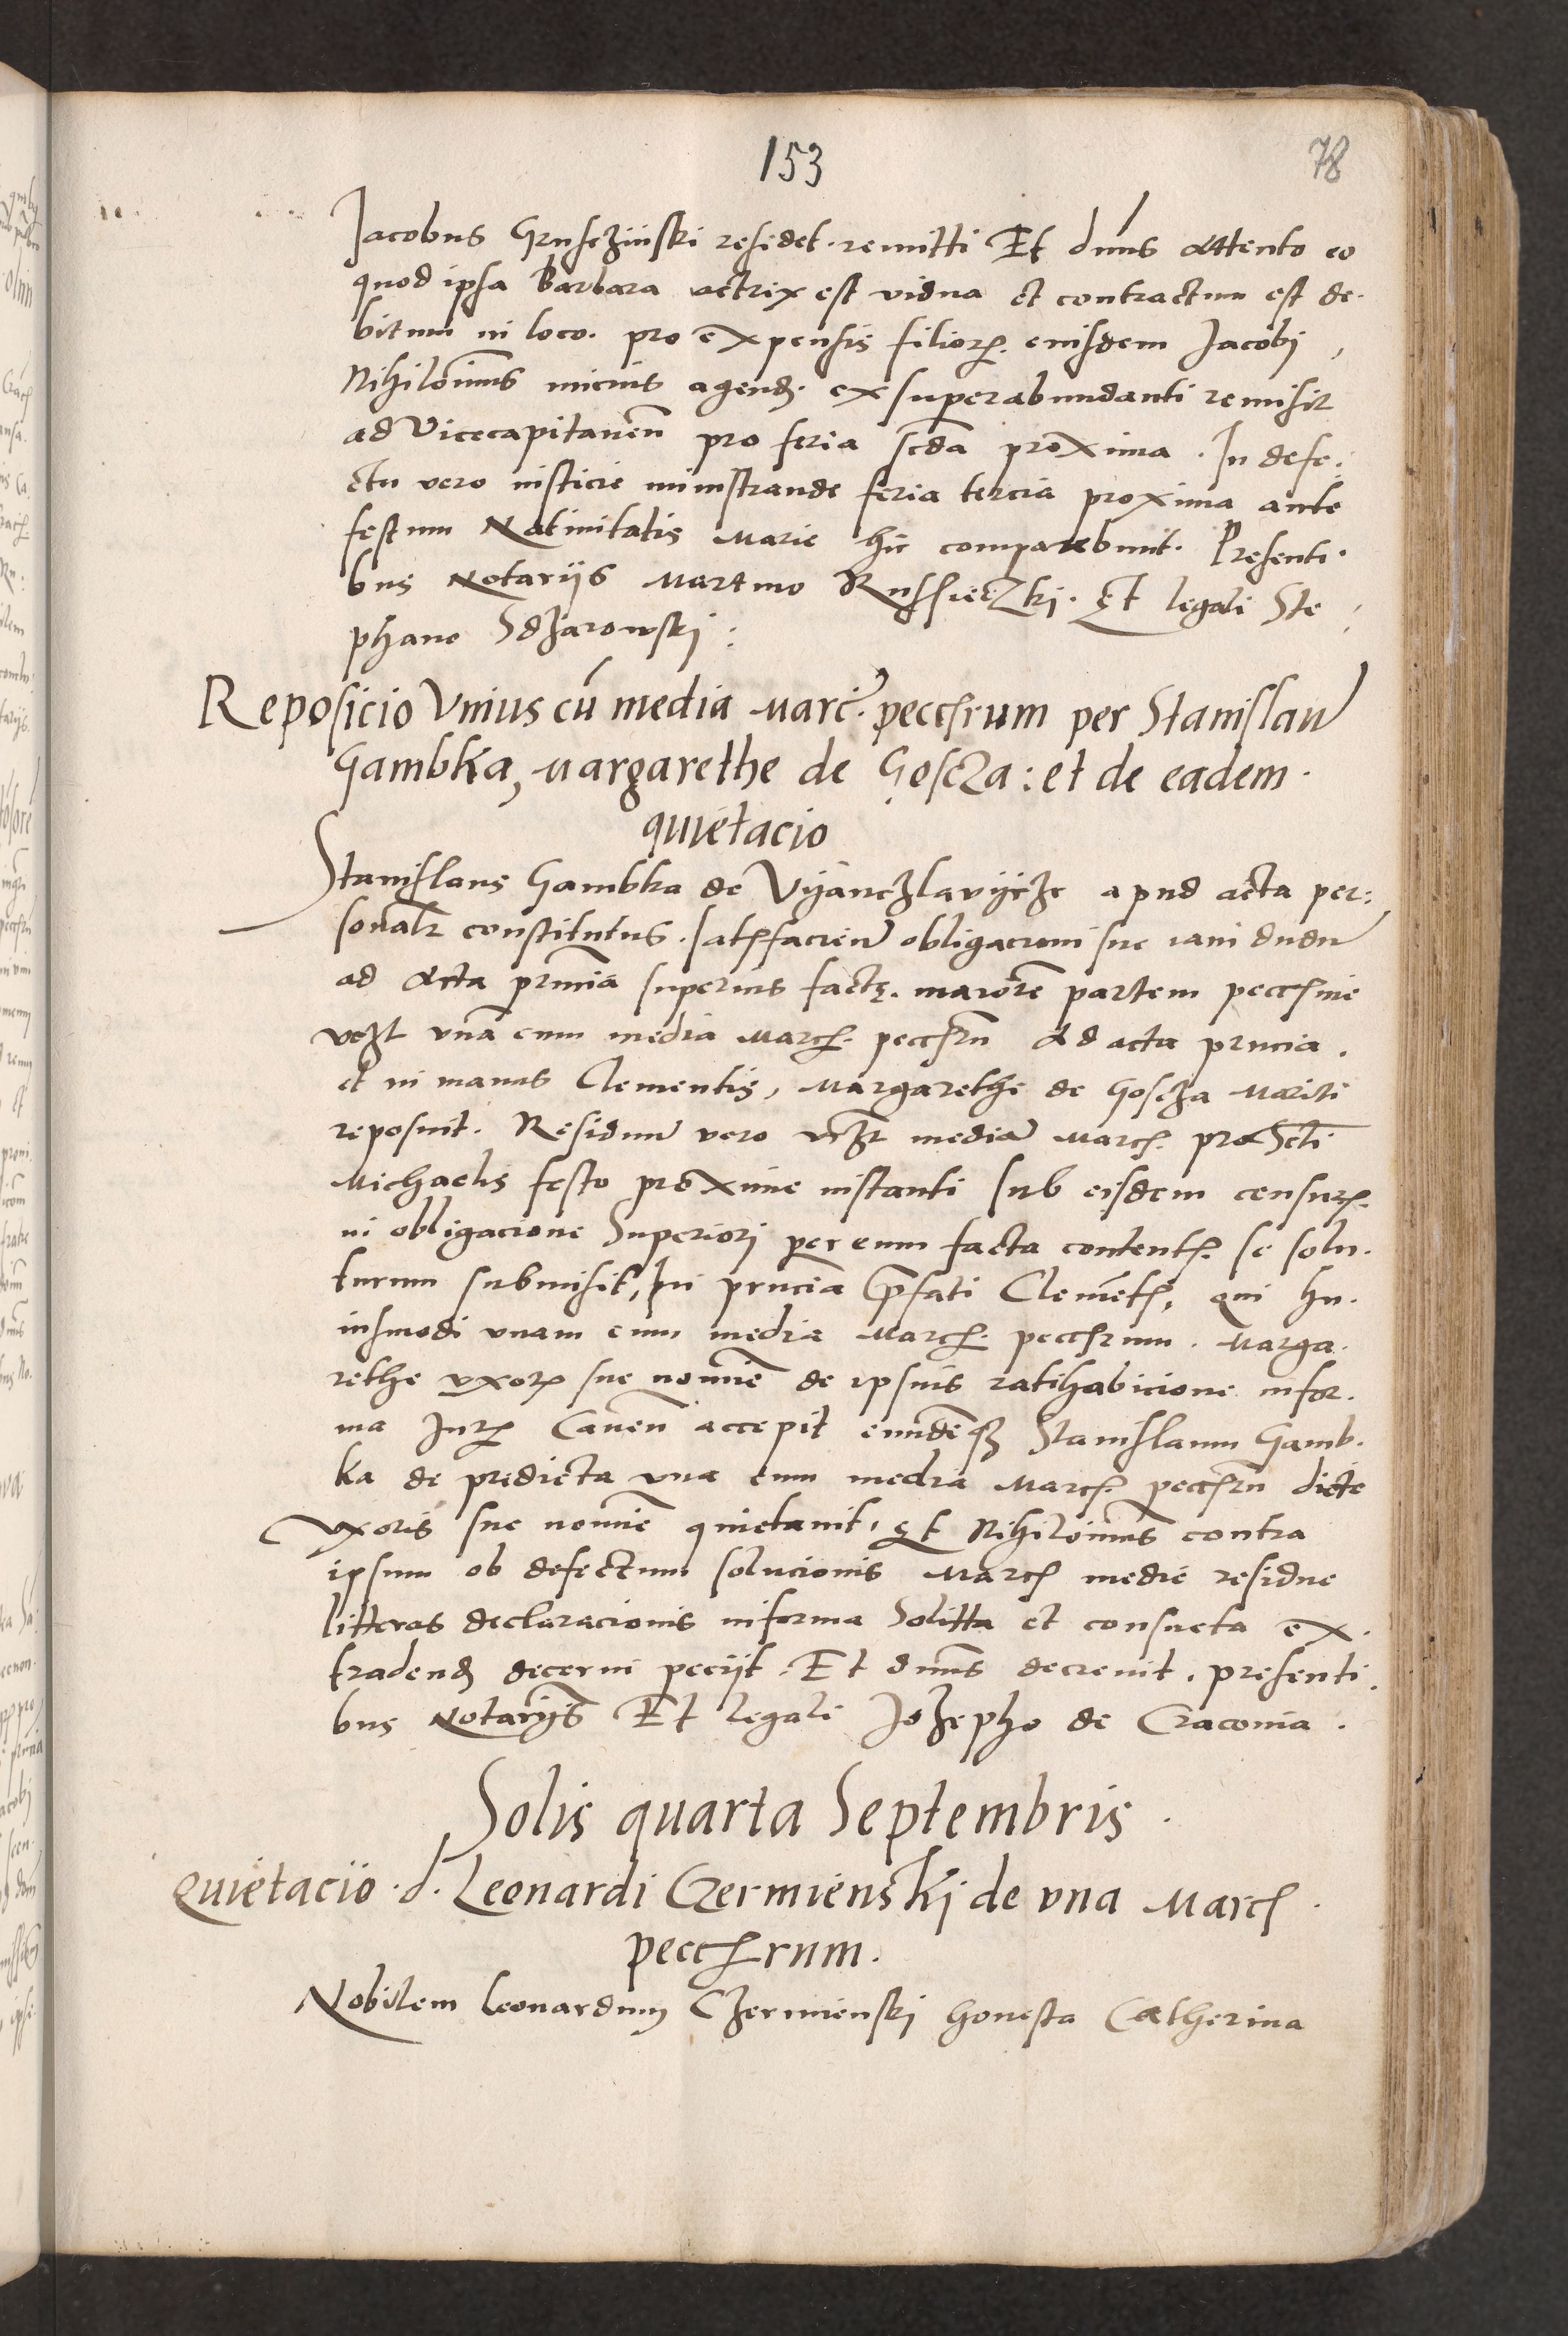 153
78
Jacobus Gruschzinski residet. remitti Et dnus attento eo
quod ipsa Barbara actrix est vidua et contractum est de-
bitum in loco. pro expensis filiorꝝ. eiusdem Jacobi,
Nihilominus micius agend. ex superabundanti remisit
ad Vicecapitanen pro feria scda proxima. In defe-
ctu vero iusticie ministrande feria tercia proxima ante
festum Natiuitatis Marie hic comparebunt. Presenti-
bus Notarijs Martino Russieczkj. Et legali Ste
phano Sdzarowskj:
Reposicio Vnius cū media Marc. peccarum per Stanislaū
Gambka, Margarethe de Goscza: et de eadem.
quietacio
Stanislaus Gambka de Vyanczlavycze apud acta per:
sonalr constitutus. satisfaciend obligacioni sue iam dudū
ad Acta prncia superius factę. maiorē partem peccunie
vczt vnā cum media Marcꝭ. peccrū Ad acta prncia.
et in manus Clementis, Margarethe de Goscza Mariti
reposuit. Residuū vero vczt mediā Marcꝭ. pro Scti
Michaelis festo proxime instanti sub eisdem censurꝭ.
in obligacione Superiorj per eum facta contentꝭ. se solu-
turum submisit, In prncia p̄fati Clemētꝭ, qui hu-
iusmodi vnam cum media Marcꝭ. peccrum. Marga-
rethe vxorꝭ sue nomine de ipsius ratihabicione infor-
ma Jurꝭ Cauen accepit eundēqꝫ Stanislaum Gamb-
ka de predicta vna cum media Marcꝭ. peccrū dicte
Vxoris sue nomine quietauit, Et Nihilominus contra
ipsum ob defectum solucionis Marcꝭ medie residue
litteras declaracionis informa Solitta et consueta ex-
tradend decerni pecijt. Et dnus decreuit. presenti
bus Notarijs Et legali Jozepho de Craconia.
Solis quarta Septembris.
Quietacio. d. Leonardi Czermienskj de vna Marcꝭ.
peccꝭrum.
Nobilem Leonardum Czermienskj honesta Catherina